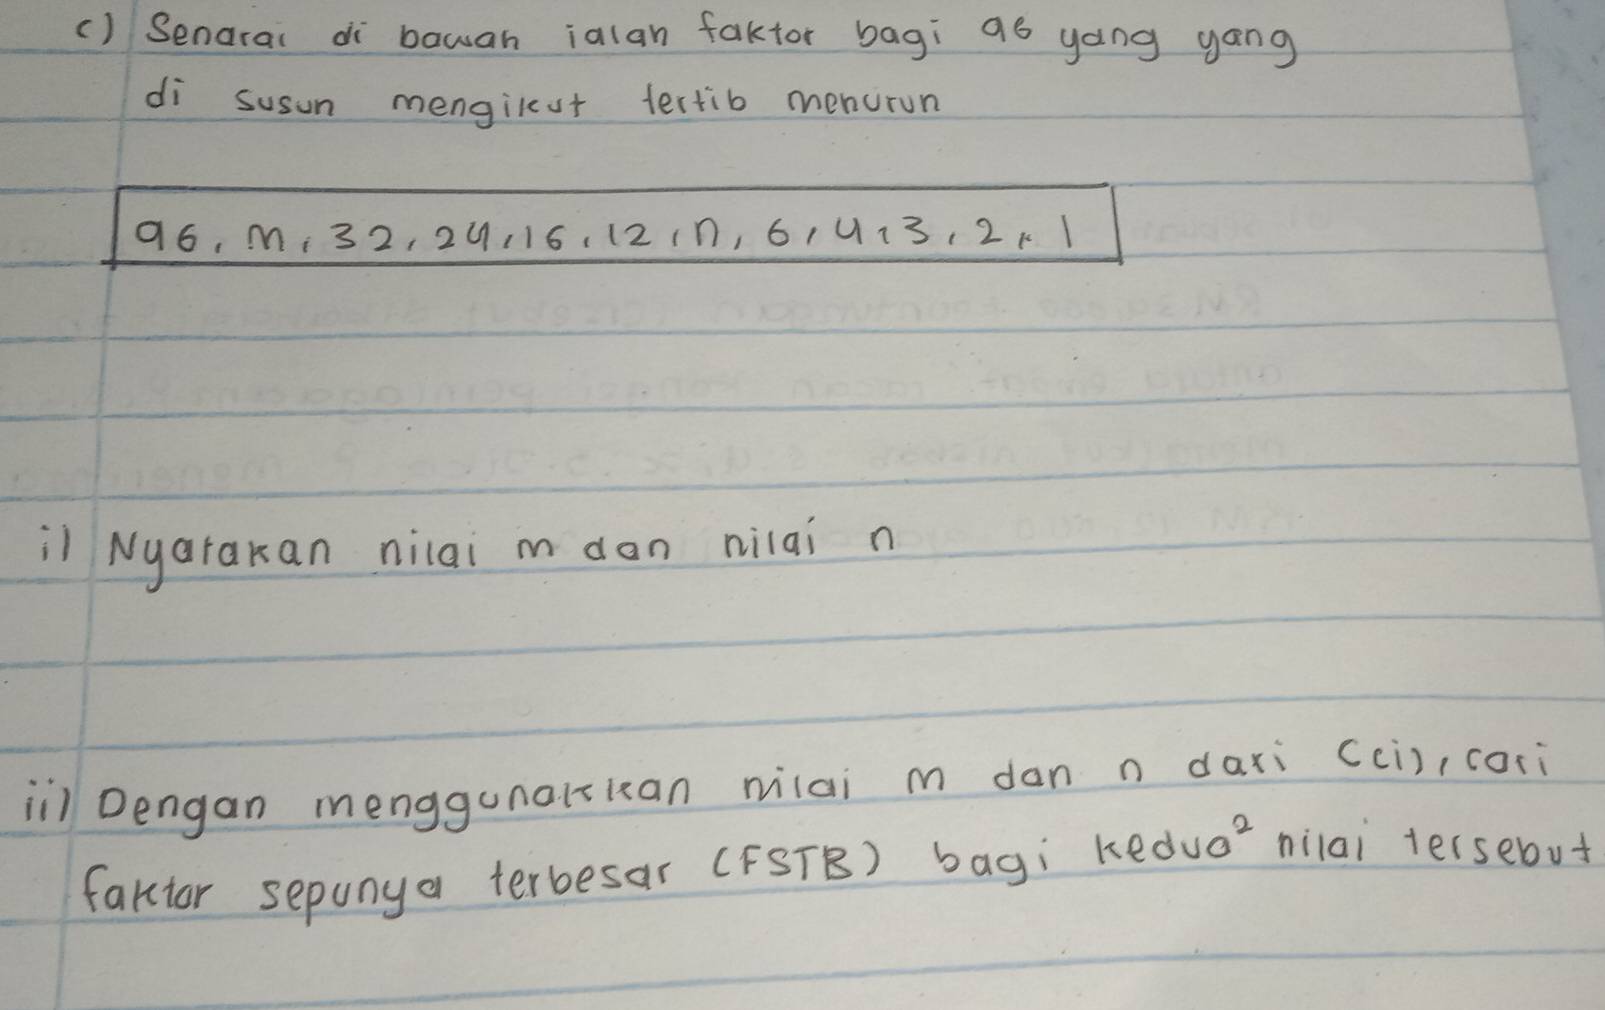 c) Senarai di bawah ialah faktor bagi 96 yang yang
di susun mengikut tertib menurun
96, m, 32, 24, 16, 12, n, 6, 4, 3, 2, 1
i) Nyatakan nilai m dan nilai n
ii) Dengan menggunakkan nilai m dan n dari c(i), cari
faktor sepunya terbesar (FSTB) bagi kedua² nilai tersebut